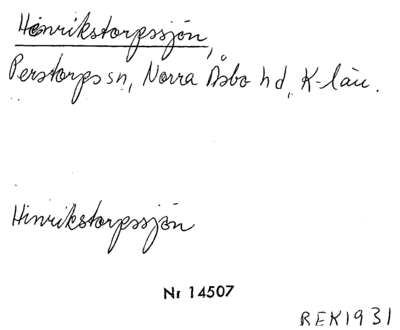 Hinrikstorpssjön,
Perstorps sn, Norra Åsbo hd, K-län.
Hinrikstorpssjön
Nr 14507
REK1931